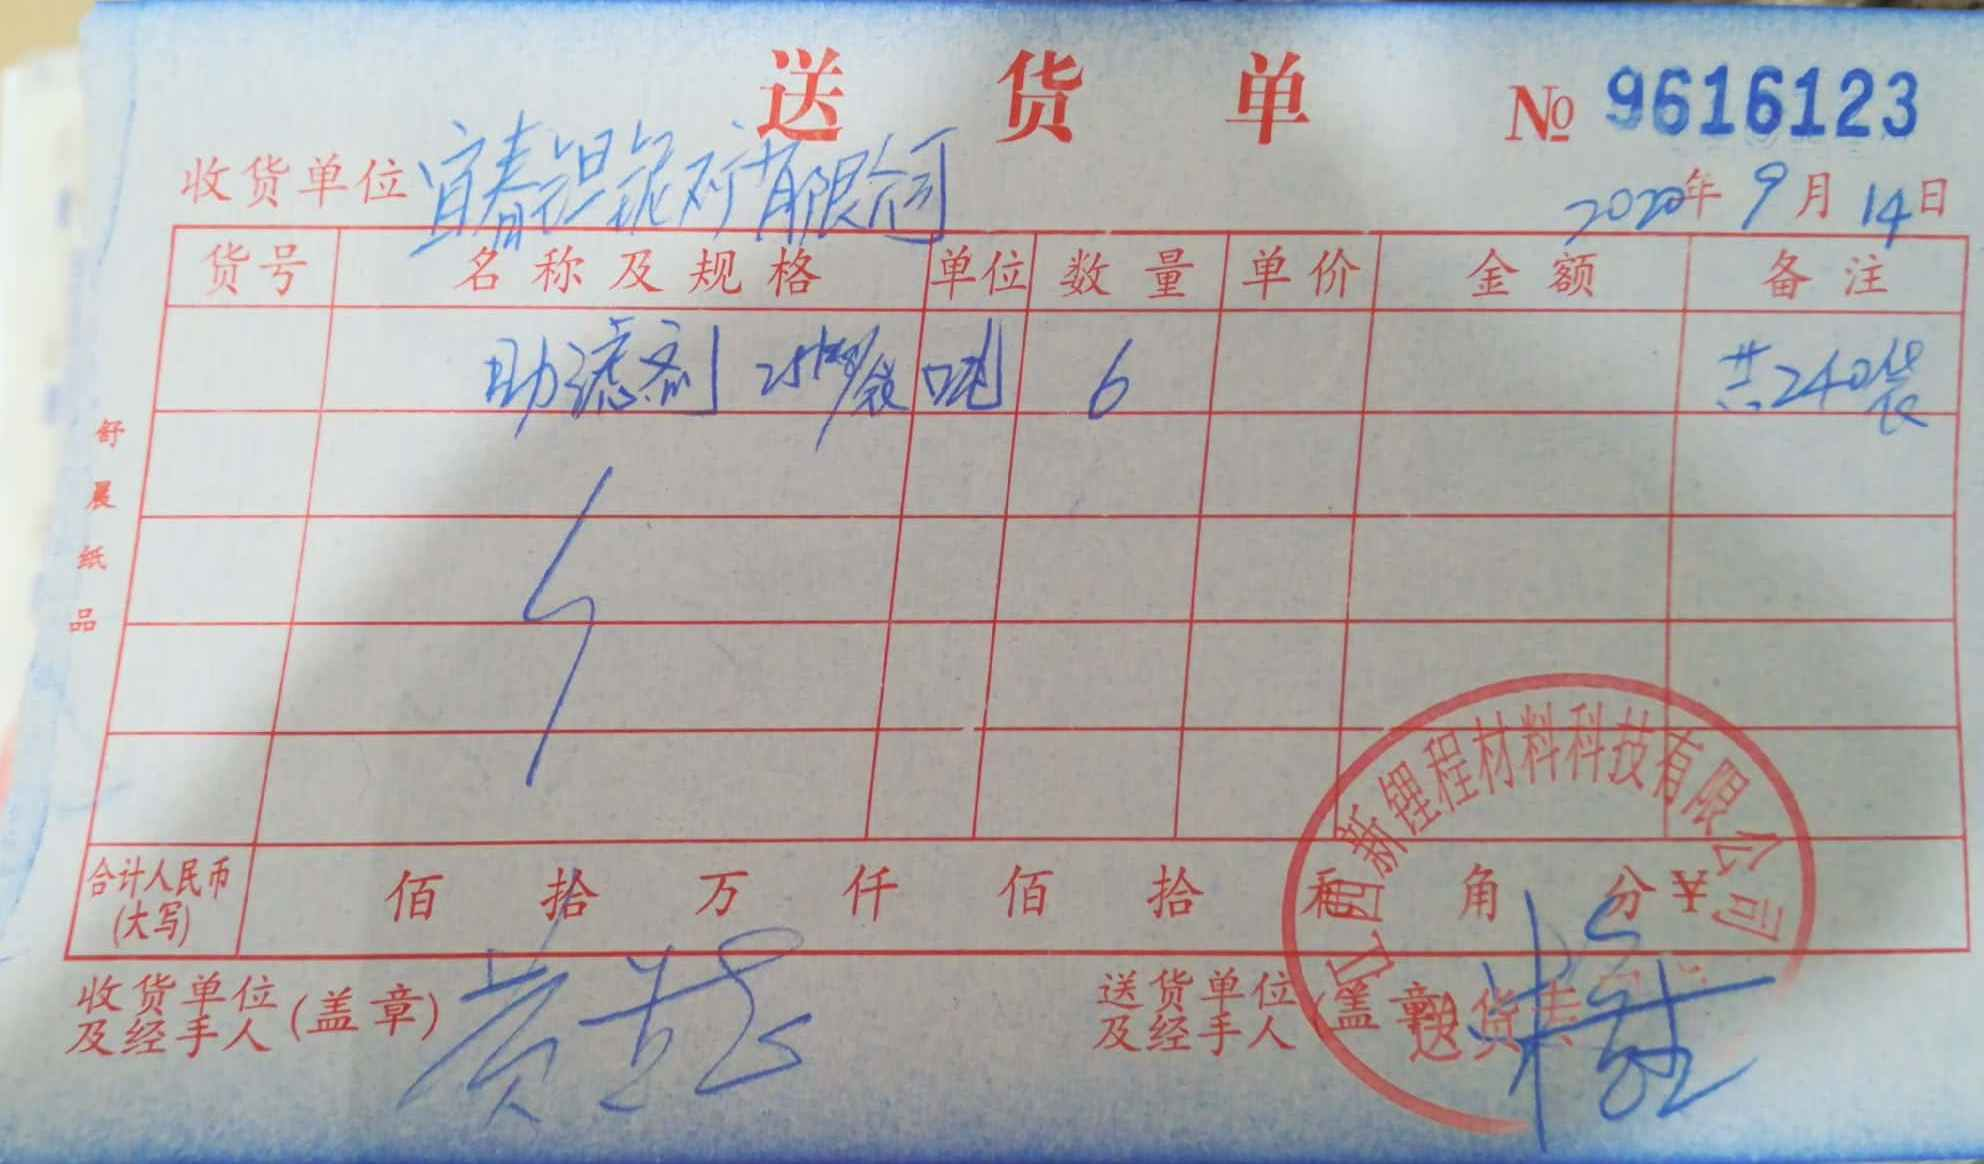 送货单 № 9616123
收货单位 宜春钽铌矿有限公司 2020年9月14日
货号 名称及规格 单位 数量 单价 金额 备注
助滤剂 25kg/袋 吨 6 共240袋
舒晨纸品
合计人民币(大写) 佰 拾 万 仟 佰 拾 元 角 分 ¥
收货单位及经手人(盖章)
送货单位及经手人(盖章)
江西新锂程材料科技有限公司
送货专